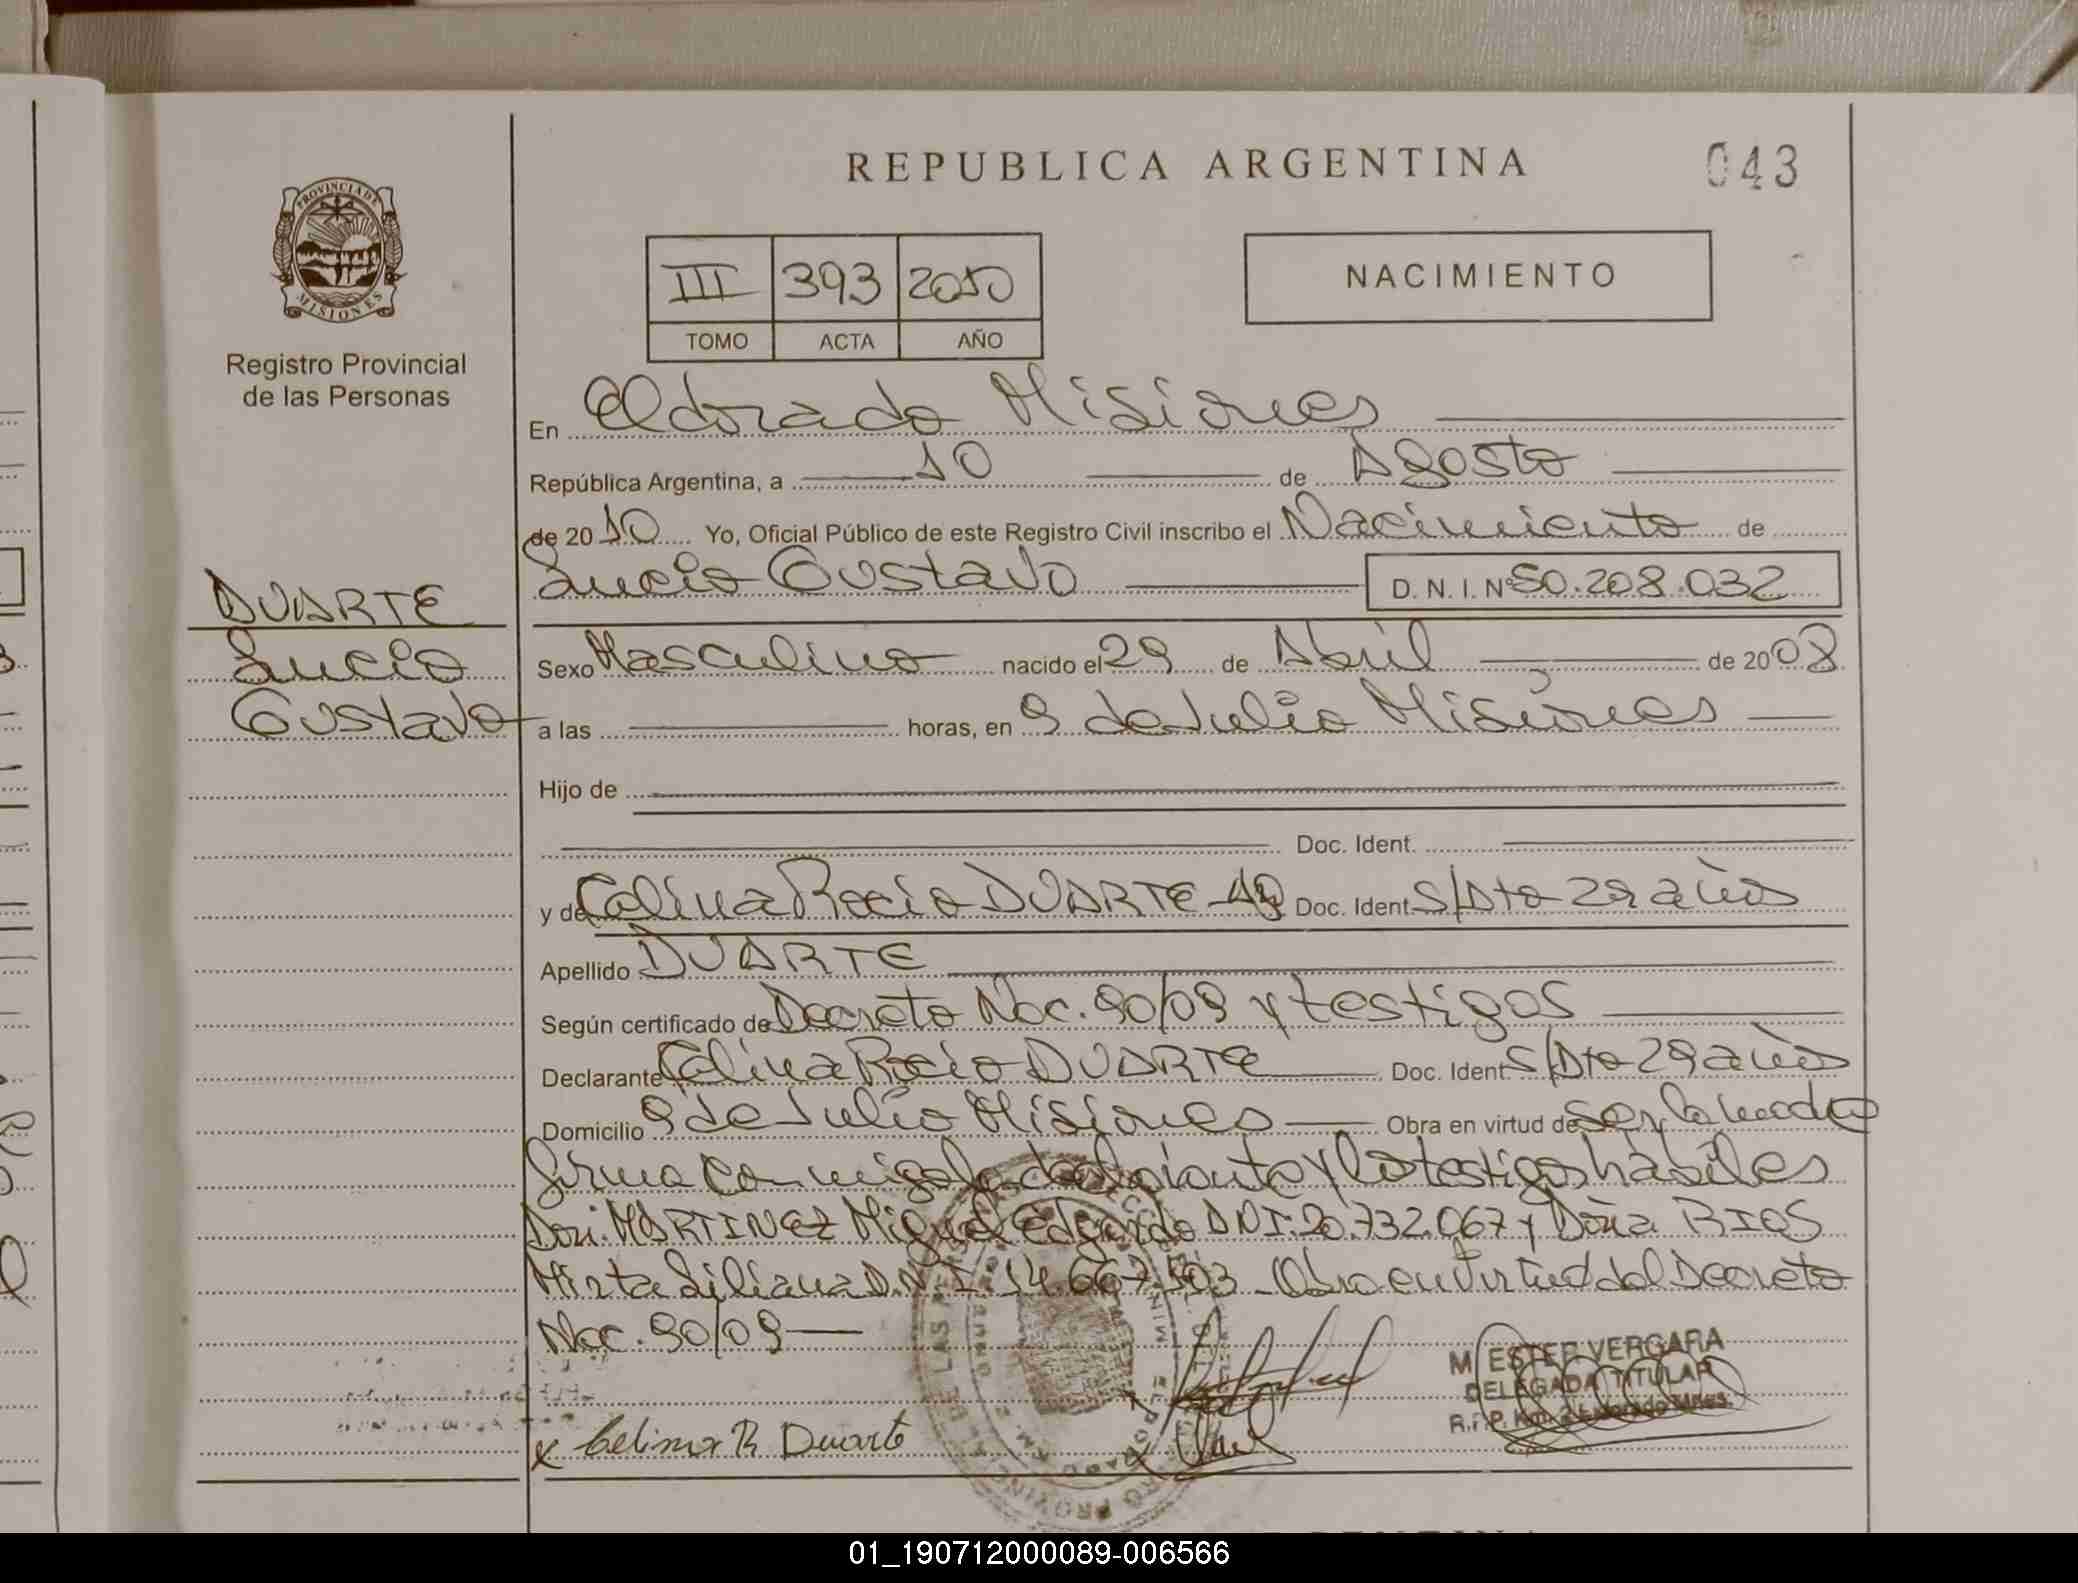 REPUBLICA ARGENTINA
043
PROVINCIA DE
MISIONES
Registro Provincial
de las Personas
III 393 2010
TOMO ACTA AÑO
NACIMIENTO
En Eldorado Misiones
República Argentina, a 10 de Agosto
de 2010 Yo, Oficial Público de este Registro Civil inscribo el Nacimiento de
Lucio Gustavo D. N. I. Nº 50.208.032
DUARTE
Lucio
Gustavo
Sexo Masculino nacido el 29 de Abril de 2008
a las horas, en 9 de Julio Misiones
Hijo de
Doc. Ident.
y de Celina Rocio DUARTE Doc. Ident. S/Dto 29 años
Apellido DUARTE
Según certificado de Decreto Nac. 90/09 y testigos
Declarante Celina Rocio DUARTE Doc. Ident. S/Dto 29 años
Domicilio 9 de Julio Misiones Obra en virtud de Ser la madre
firma conmigo la declarante y los testigos hábiles
Don: MARTINEZ Miguel Edgardo DNI.20.732.067 y Doña RIOS
Mirta Liliana D.N.I. 14.667.503 - Obra en Virtud del Decreto
Nac. 90/09
x Celina R Duarte
M. ESTER VERGARA
DELEGADA TITULAR
01_190712000089-006566